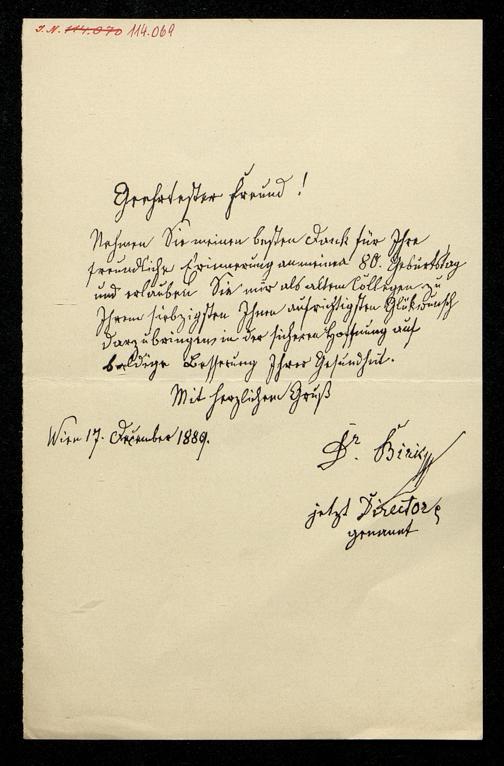 I. N. 114.070 114.069
Geehrtester Freund!
Nehmen Sie meinen besten Dank für Ihre
freundliche Erinnerung an meinen 80. Geburtstag
und erlauben Sie mir als altem Collegen zu
Ihrem siebzigsten Ihnen aufrichtigsten Glükwunsch
darzubringen, in der sicheren Hoffnung auf
baldige Besserung Ihrer Gesundheit.
Mit herzlichem Gruß
Wien 17. December 1889.
Dr. Birk
jetzt Director
genannt